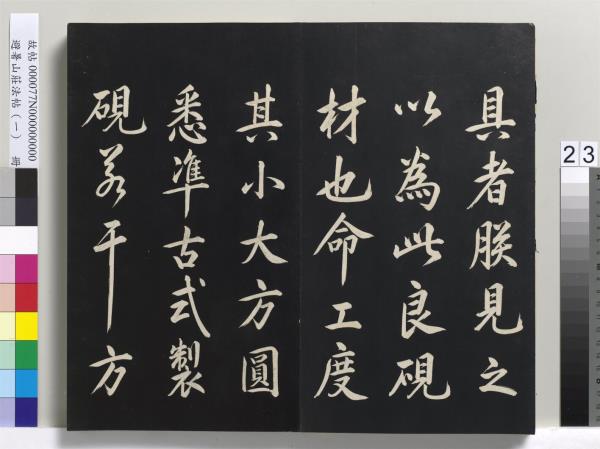 具者朕見之
以為此良硯
材也命工度
其小大方圓
悉准古式製
硯若干方
故帖 000077N000000000
避暑山莊法帖（一）
23